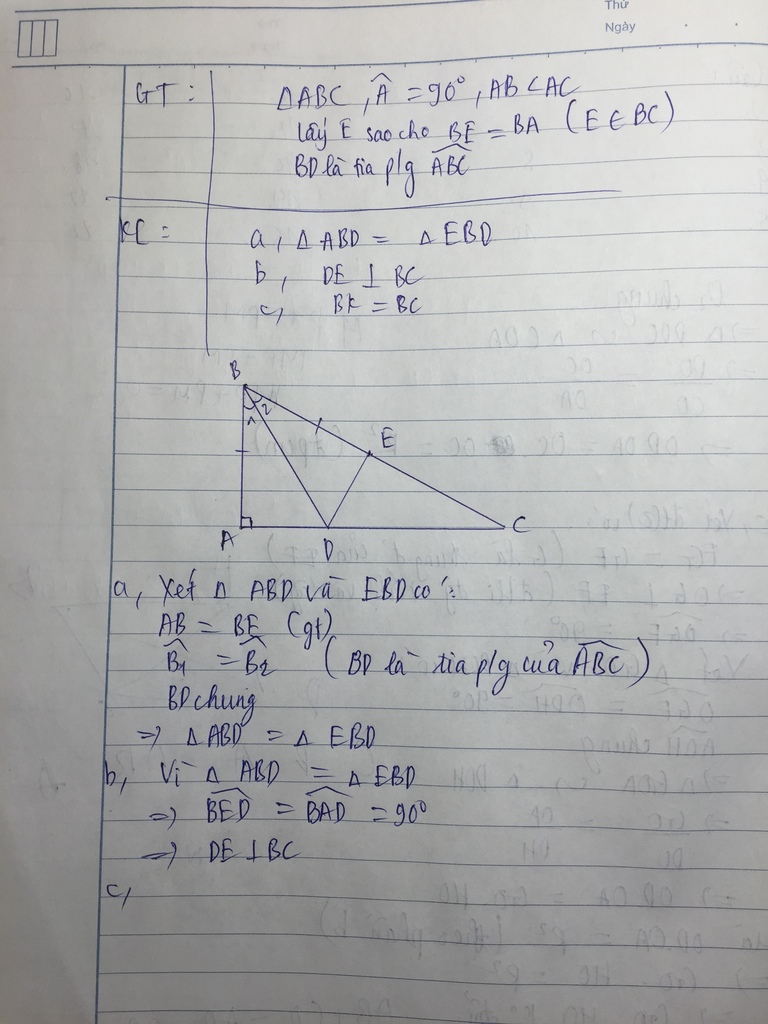 Thứ
Ngày
GT: ΔABC, Â = 90°, AB < AC
lấy E sao cho BE = BA (E ∈ BC)
BD là tia p/g \widehat{ABC}
KL: a, Δ ABD = Δ EBD
b, DE ⊥ BC
c, BK = BC
B
1 2
E
A
D
C
a, Xét Δ ABD và EBD có:
AB = BE (gt)
\widehat{B_1} = \widehat{B_2} (BD là tia p/g của \widehat{ABC})
BD chung
=> Δ ABD = Δ EBD
b, Vì Δ ABD = Δ EBD
=> \widehat{BED} = \widehat{BAD} = 90°
=> DE ⊥ BC
c,